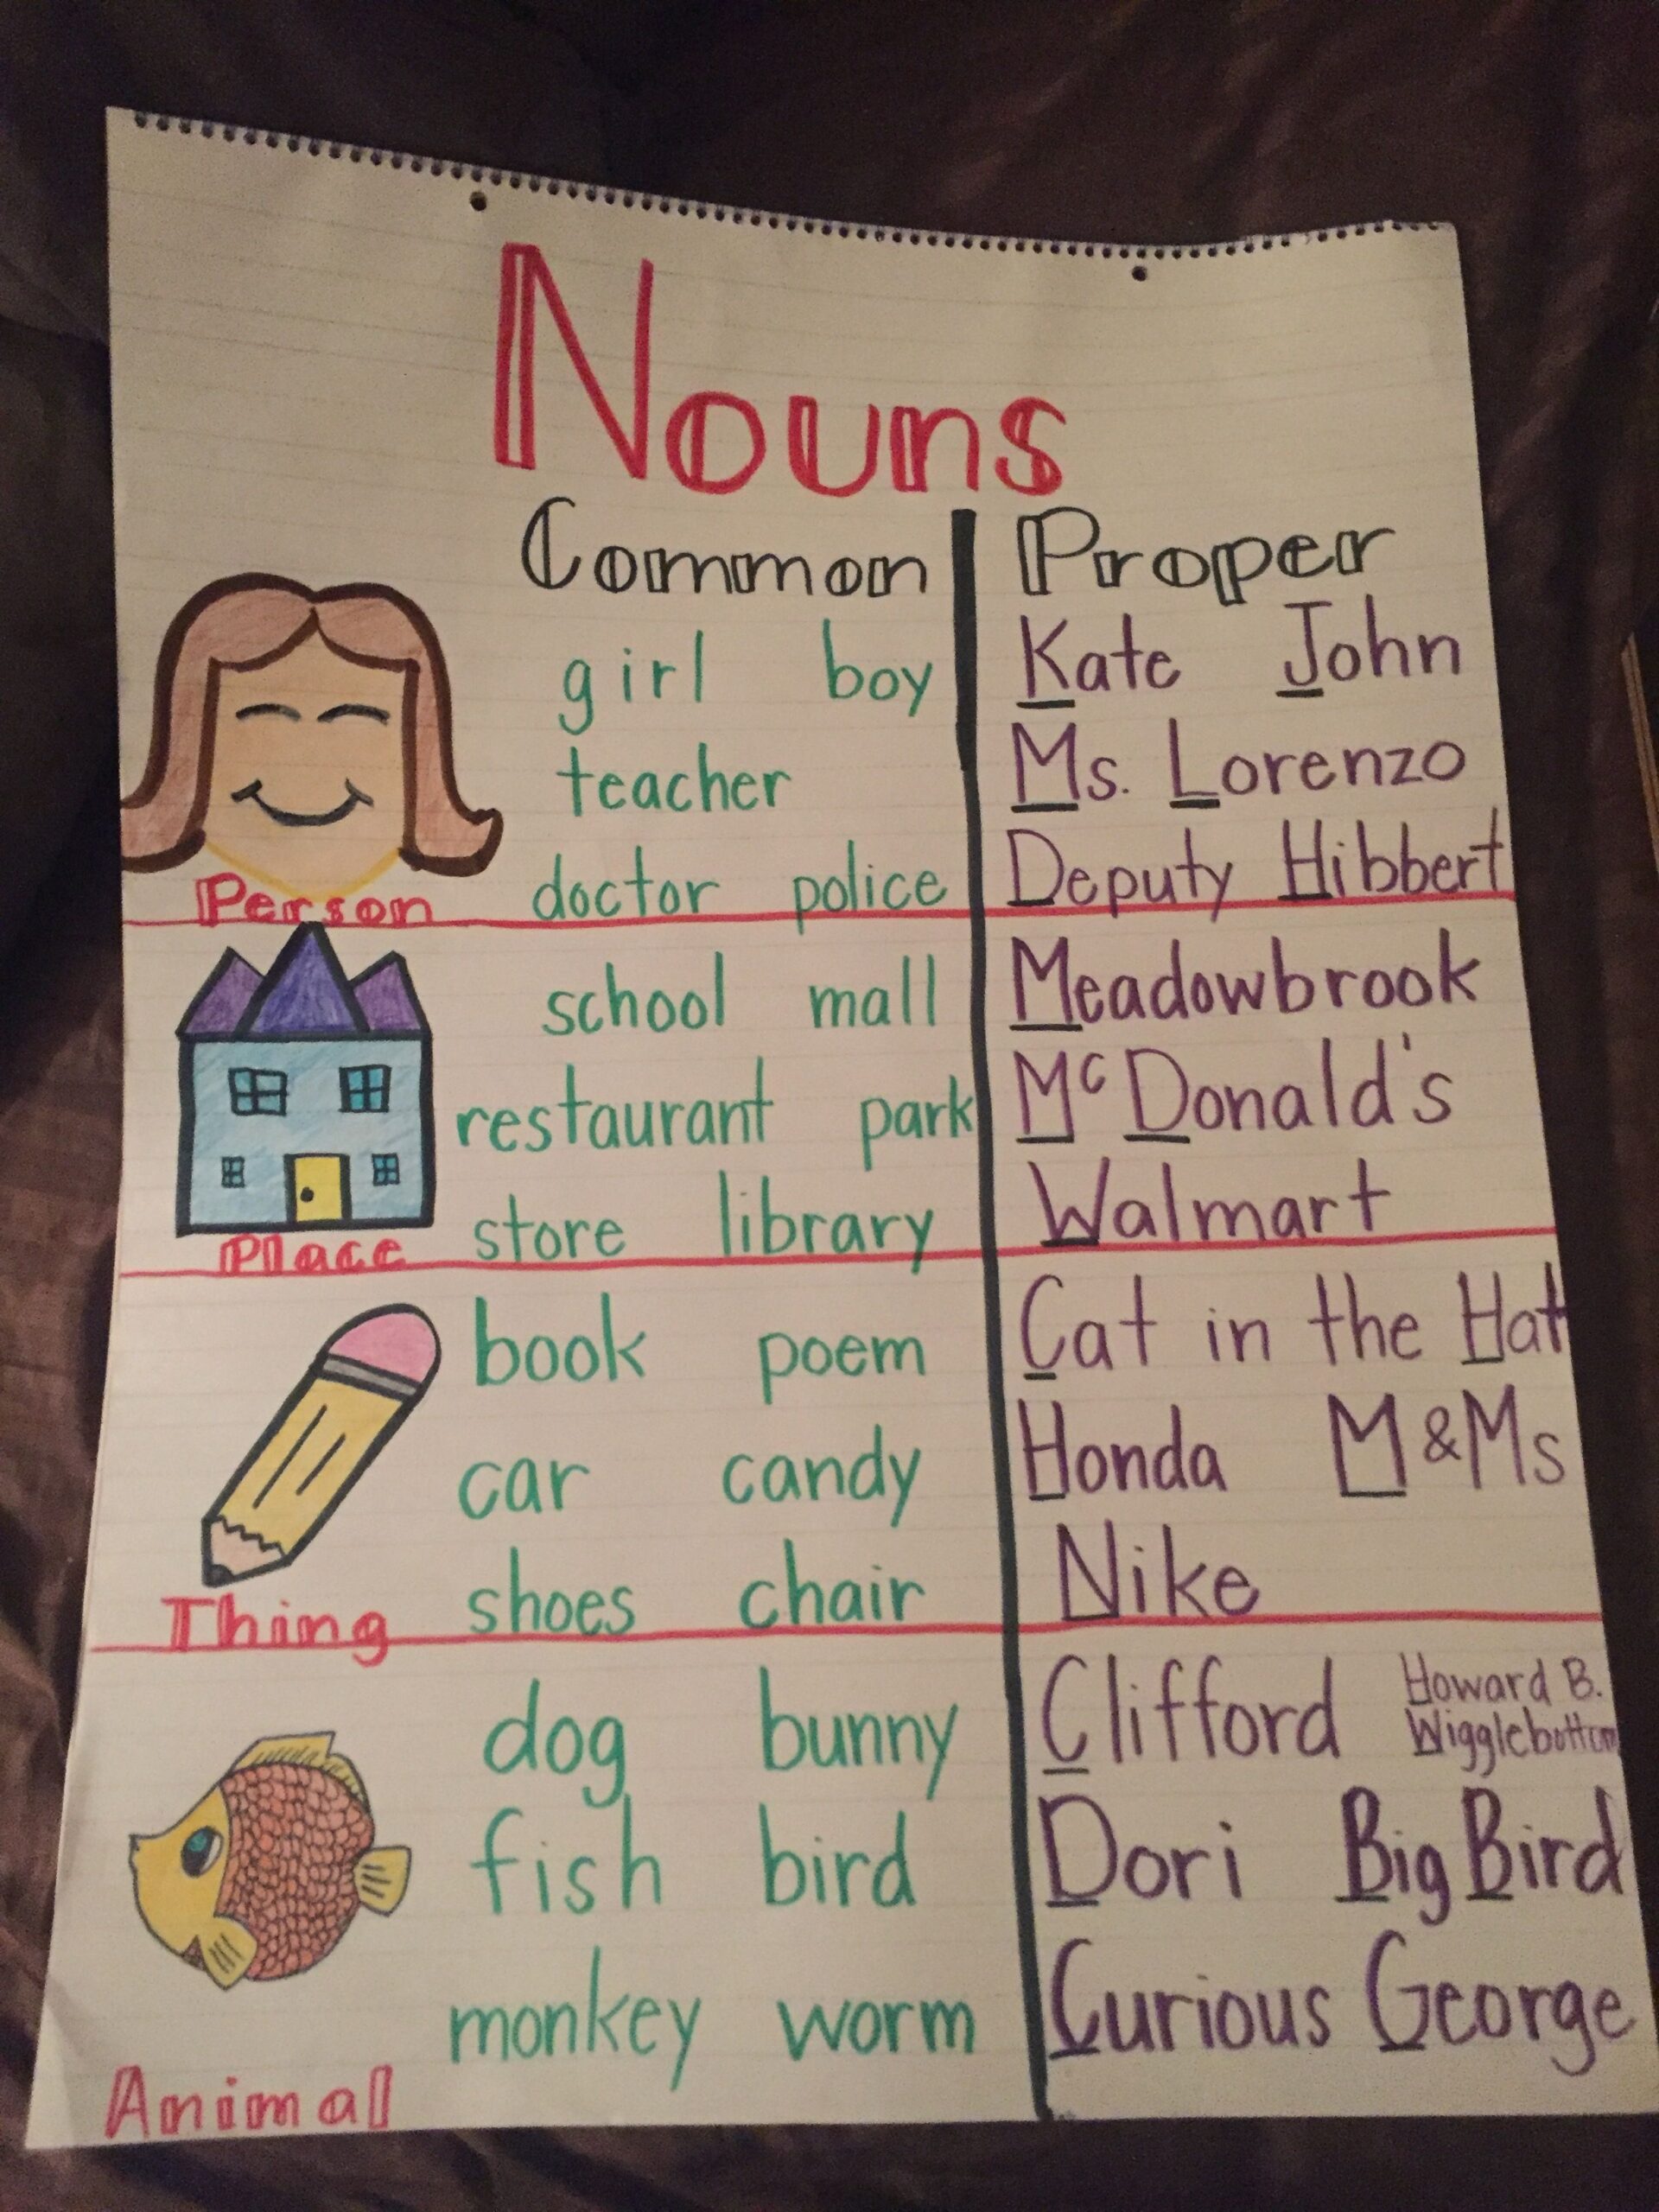 Nouns
Common Proper
girl boy Kate John
teacher Ms. Lorenzo
Person doctor police Deputy Hibbert
school mall Meadowbrook
restaurant park McDonald's
Place store library Walmart
book poem Cat in the Hat
car candy Honda M&Ms
Thing shoes chair Nike
dog bunny Clifford Howard B. Wigglebottom
fish bird Dori Big Bird
monkey worm Curious George
Animal